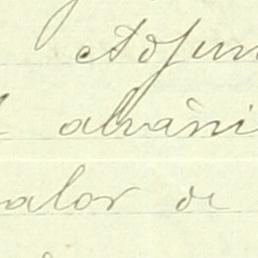 Adjun
alvāni
alor de